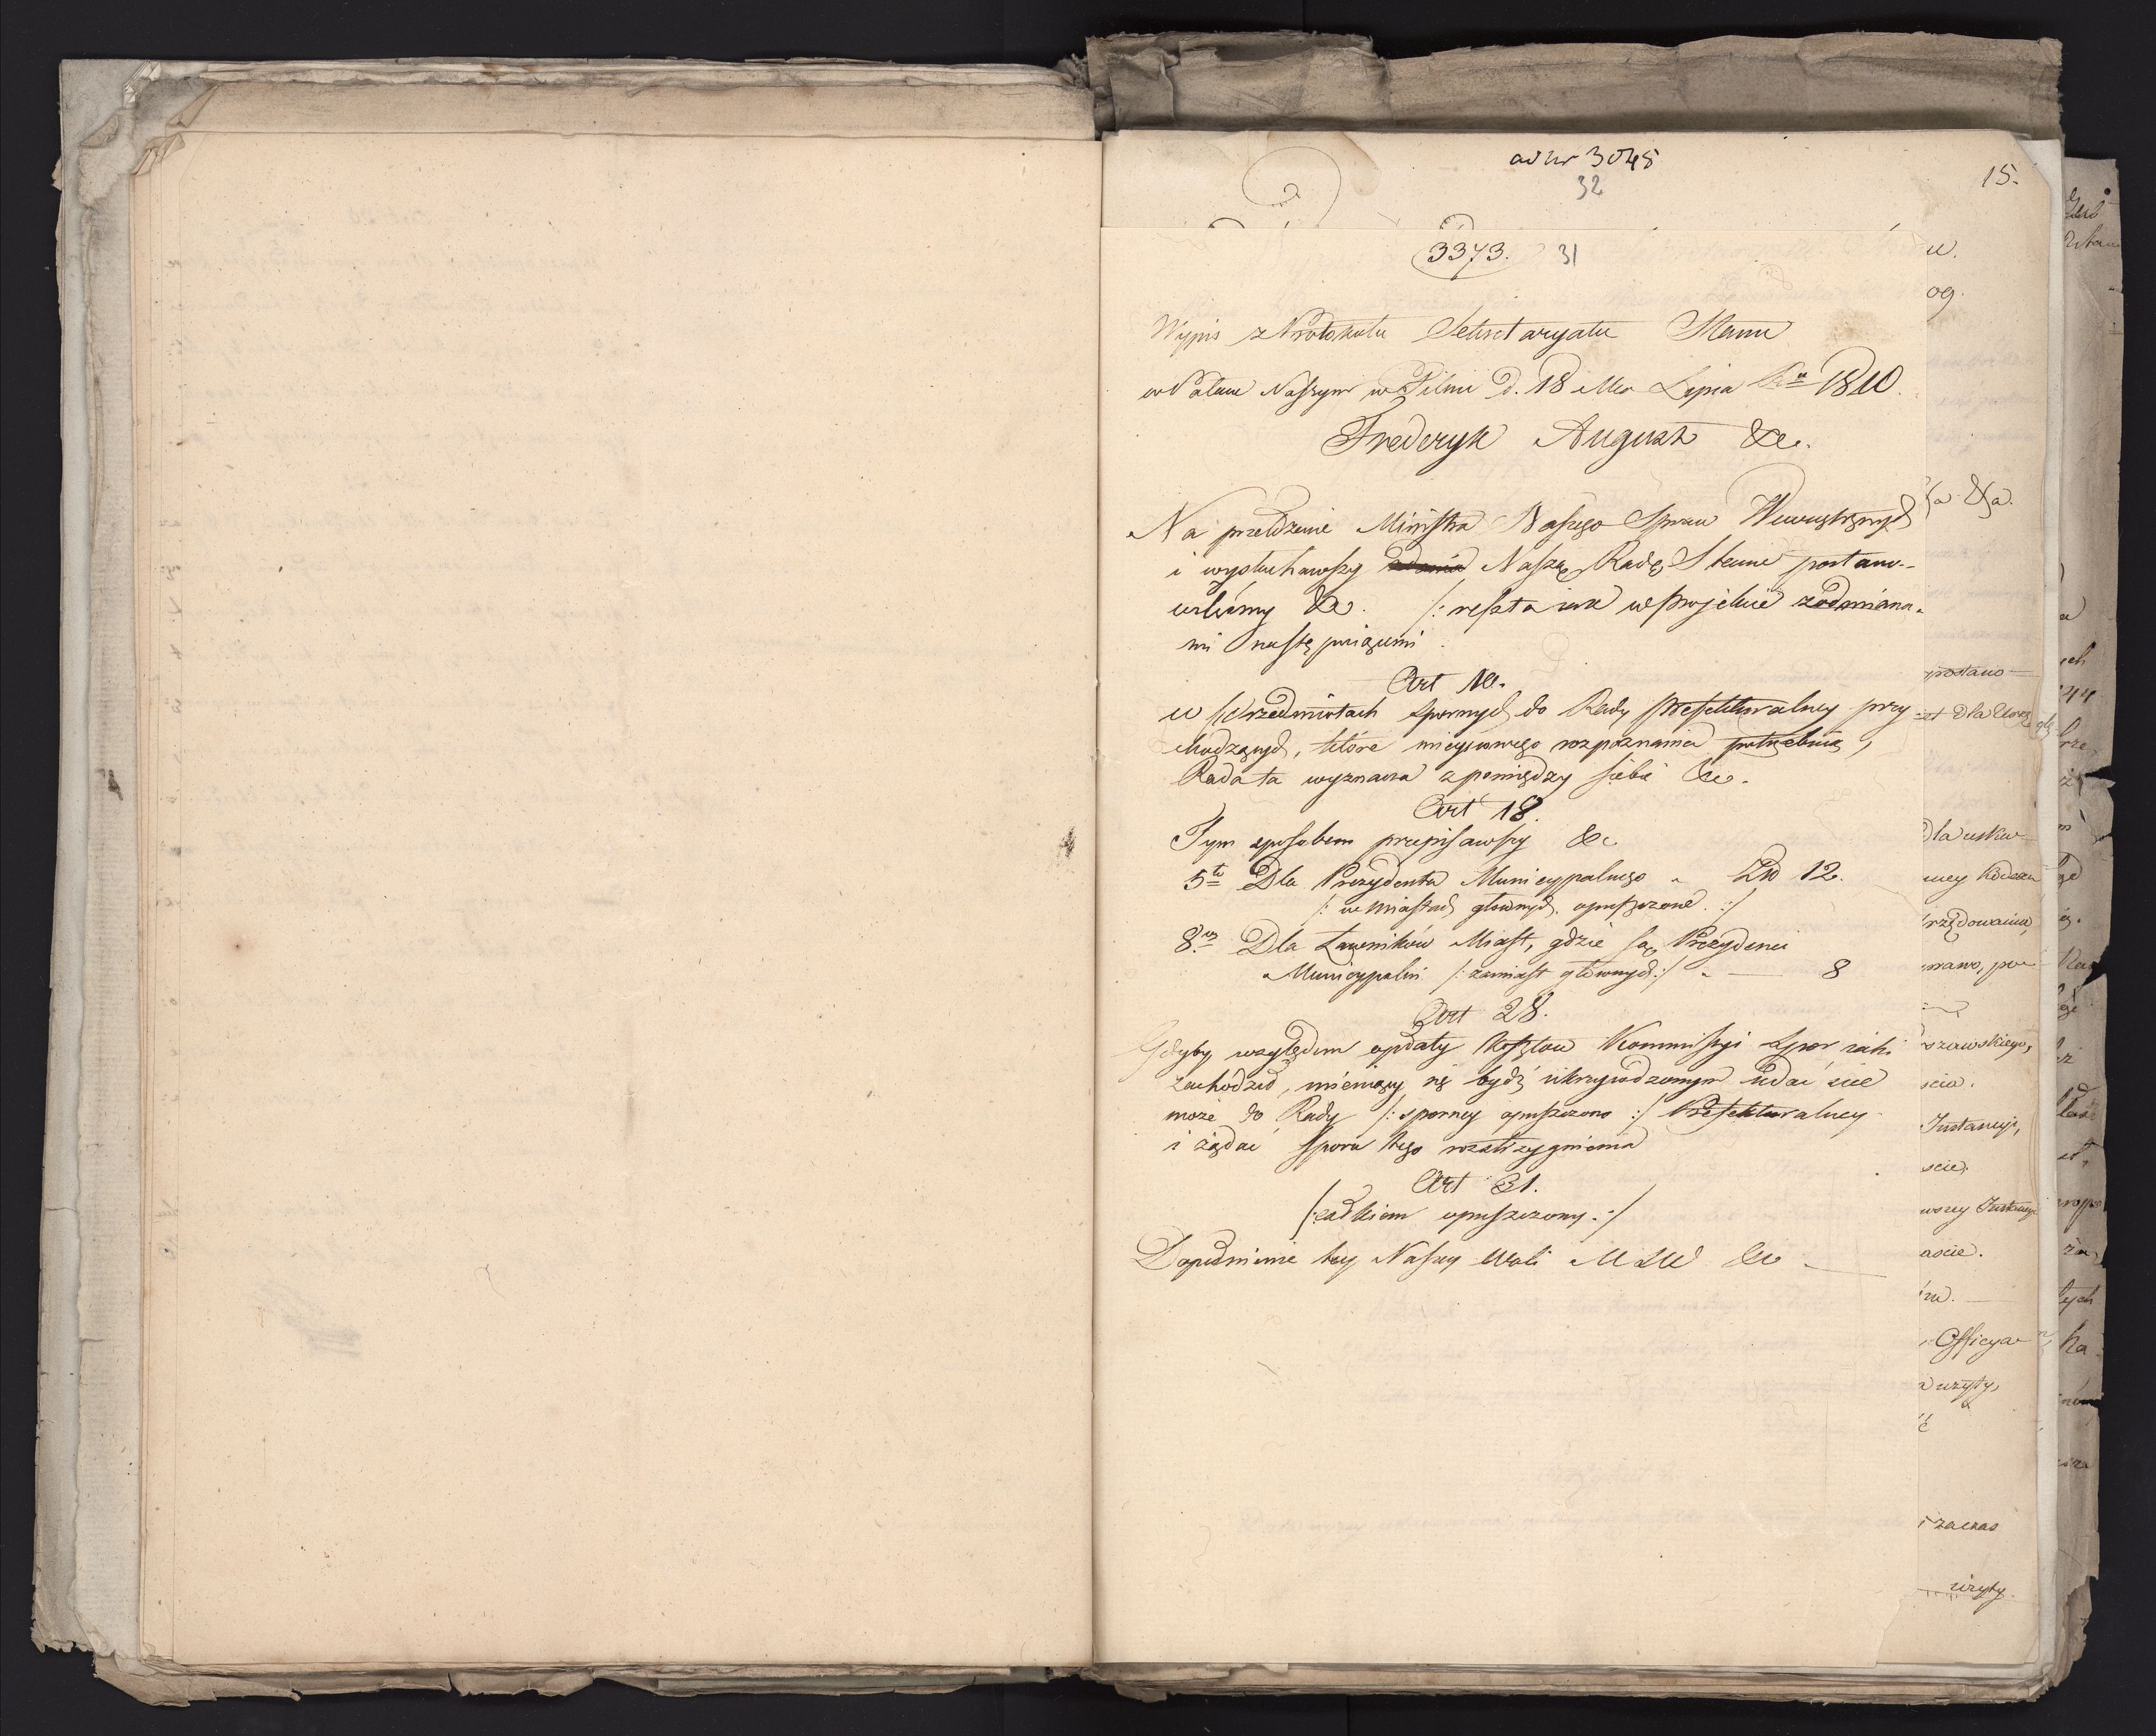 ad nr 3045
32
15.
3373. 31
Wypis z Protokułu Sekretaryatu Stanu
w Pałacu Naszym w Pilnic d. 18 Mca Lipca Ru 1810.
Frederyk August &c.
Na przełożenie Ministra Naszego Spraw Wewnętrznych
i wysłuchawszy Naszą Radę Stanu postano-
wiliśmy &c. /: reszta iak w Projekcie z odmiana-
mi następuiącemi
Art 10.
W Przedmiotach spornych do Rady Prefekturalney przy
chodzących, które mieyscowego rozpoznania potrzebuią,
Rada ta wyznacza z pomiędzy siebie &c.
Art 18.
Tym sposobem przepisawszy &c
5to Dla Prezydenta Municypalnego " Złp 12.
/: w miastach głównych opuszczone :/
8vo Dla Ławników Miast, gdzie są Prezydenci
Municypalni /: zamiast głównych :/ " — 8
Art 28.
Gdyby względem opłaty kosztów Kommissyi spór iaki
zachodził, mieniący się bydź ukrzywdzonym udać się
może do Rady /: sporney opuszczono :/ Prefekturalney
i żądać sporu tego rozstrzygnienia
Art 31.
/: całkiem opuszczony :/
Dopełnienie tey Naszey Woli MSW &c —
u.
og.
&a.
postano
dla usku-
rzędowania,
prawo, po-
szawskiego,
scia.
Instancyi,
scie.
wszey Instancyi
ascie.
Officya-
użyty,
zaczas
użyty.